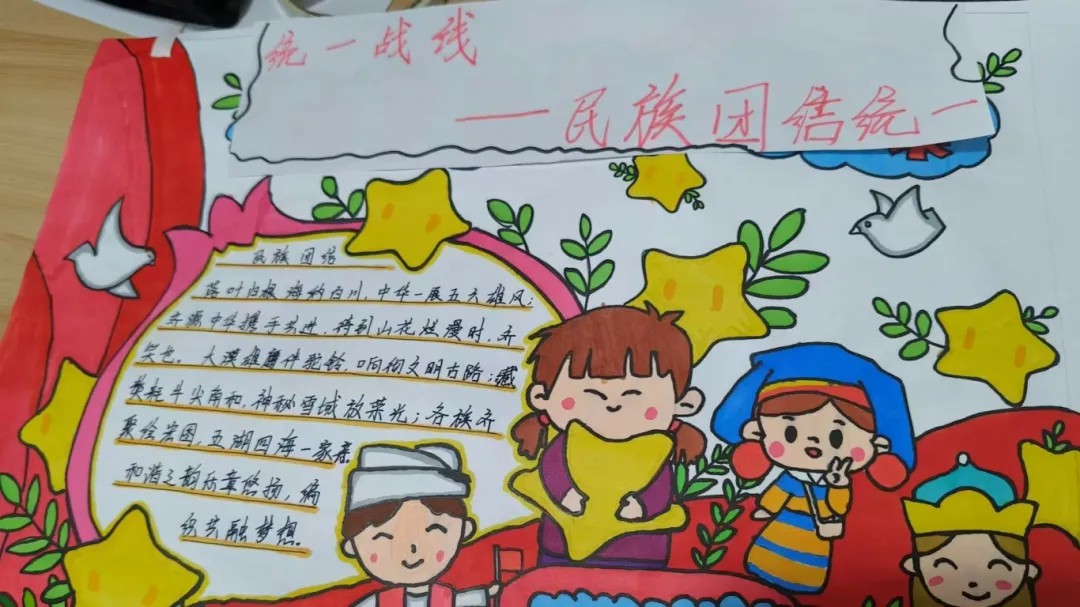 统一战线
——民族团结统一
民族团结
落叶归根海纳百川,中华一展五大雄风;
齐源中华携手共进,待到山花烂漫时,齐
笑也。大漠雄鹰伴驼铃,响彻文明古路;藏
牦牛尖角和,神秘雪域放荣光;各族齐
聚绘宏图,五湖四海一家亲
和谐之韵乐章悠扬,偏
织共融梦想。